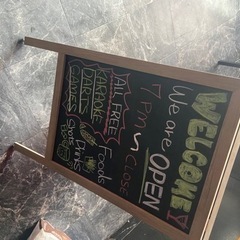 WELCOME!
We are OPEN
7PM ~ CLOSE
ALL FREE
KARAOKE
DARTS
GAMES
Foods
Drinks